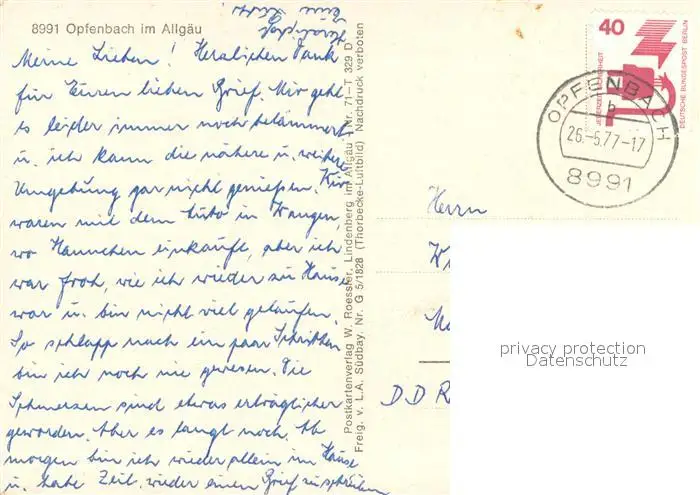 8991 Opfenbach im Allgäu
Meine Lieben! Herzlichen Dank
für Euren lieben Brief. Mir geht
es leider immer noch belämmert
u. ich kann die nähere u. weitere
Umgebung gar nicht genießen. Wir
waren mit dem Auto in Wangen,
wo Hannchen einkaufte, aber ich
war froh, wie ich wieder zu Hause
war u. bin nicht viel gelaufen.
So schlapp nach ein paar Schritten
bin ich noch nie gewesen. Die
Schmerzen sind etwas erträglicher
geworden. Aber es langt noch. Ab
morgen bin ich wieder allein im Hause
u. habe Zeit, wieder einen Brief zu schreiben
Herzlichst
Eure
Postkartenverlag W. Roessler, Lindenberg im Allgäu Nr. 71-T 329 D
Freig. v. L.A. Südbay. Nr. G 5/1828 (Thorbecke-Luftbild) Nachdruck verboten
40
JEDERZEIT SICHERHEIT
DEUTSCHE BUNDESPOST BERLIN
OPFENBACH
b
26.-5.77-17
8991
Herrn
W
DDR
privacy protection
Datenschutz